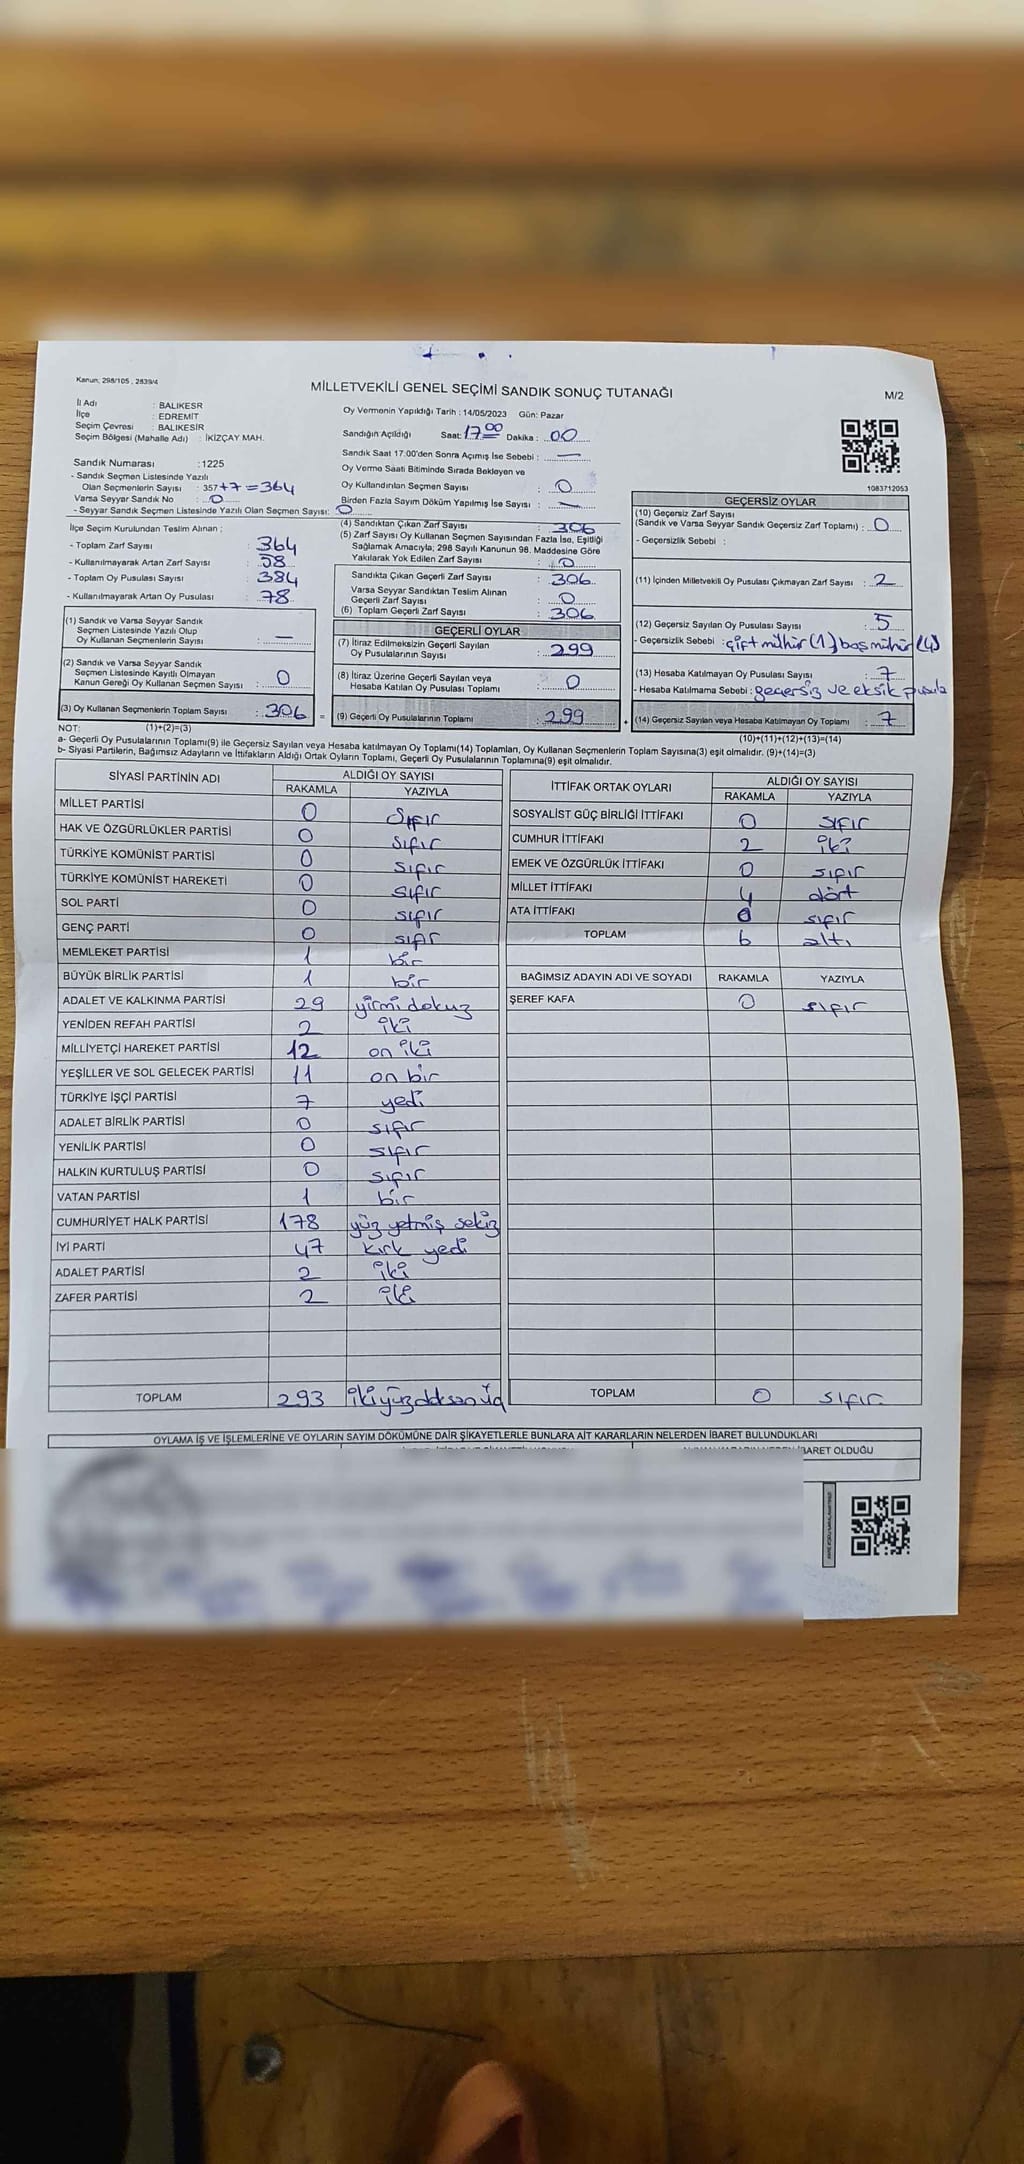 Kanun; 298/105 , 2839/4
MİLLETVEKİLİ GENEL SEÇİMİ SANDIK SONUÇ TUTANAĞI
M/2
İl Adı : BALIKESR
İlçe : EDREMİT
Seçim Çevresi : BALIKESİR
Seçim Bölgesi (Mahalle Adı) : İKİZÇAY MAH.
Sandık Numarası :1225
- Sandık Seçmen Listesinde Yazılı
Olan Seçmenlerin Sayısı : 357+7=364
Varsa Seyyar Sandık No : 0
- Seyyar Sandık Seçmen Listesinde Yazılı Olan Seçmen Sayısı: 0
İlçe Seçim Kurulundan Teslim Alınan ;
- Toplam Zarf Sayısı 364
- Kullanılmayarak Artan Zarf Sayısı : 58
- Toplam Oy Pusulası Sayısı 384
- Kullanılmayarak Artan Oy Pusulası : 78
(1) Sandık ve Varsa Seyyar Sandık
Seçmen Listesinde Yazılı Olup
Oy Kullanan Seçmenlerin Sayısı : —
(2) Sandık ve Varsa Seyyar Sandık
Seçmen Listesinde Kayıtlı Olmayan
Kanun Gereği Oy Kullanan Seçmen Sayısı : 0
(3) Oy Kullanan Seçmenlerin Toplam Sayısı : 306 =
Oy Vermenin Yapıldığı Tarih : 14/05/2023 Gün: Pazar
Sandığın Açıldığı Saat: 17 00 Dakika : 00
Sandık Saat 17:00'den Sonra Açımış İse Sebebi : —
Oy Verme Saati Bitiminde Sırada Bekleyen ve
Oy Kullandırılan Seçmen Sayısı : 0
Birden Fazla Sayım Döküm Yapılmış İse Sayısı : —
(4) Sandıktan Çıkan Zarf Sayısı : 306
(5) Zarf Sayısı Oy Kullanan Seçmen Sayısından Fazla İse, Eşitliği
Sağlamak Amacıyla; 298 Sayılı Kanunun 98. Maddesine Göre
Yakılarak Yok Edilen Zarf Sayısı : 0
Sandıkta Çıkan Geçerli Zarf Sayısı : 306
Varsa Seyyar Sandıktan Teslim Alınan
Geçerli Zarf Sayısı : 0
(6) Toplam Geçerli Zarf Sayısı : 306
GEÇERLİ OYLAR
(7) İtiraz Edilmeksizin Geçerli Sayılan
Oy Pusulalarının Sayısı : 299
(8) İtiraz Üzerine Geçerli Sayılan veya
Hesaba Katılan Oy Pusulası Toplamı : 0
(9) Geçerli Oy Pusulalarının Toplamı : 299 +
1083712053
GEÇERSİZ OYLAR
(10) Geçersiz Zarf Sayısı
(Sandık ve Varsa Seyyar Sandık Geçersiz Zarf Toplamı) : 0
- Geçersizlik Sebebi :
(11) İçinden Milletvekili Oy Pusulası Çıkmayan Zarf Sayısı : 2
(12) Geçersiz Sayılan Oy Pusulası Sayısı : 5
- Geçersizlik Sebebi : çift mühür (1) boş mühür (4)
(13) Hesaba Katılmayan Oy Pusulası Sayısı : 7
- Hesaba Katılmama Sebebi : geçersiz ve eksik pusula
(14) Geçersiz Sayılan veya Hesaba Katılmayan Oy Toplamı : 7
NOT: (1)+(2)=(3) (10)+(11)+(12)+(13)=(14)
a- Geçerli Oy Pusulalarının Toplamı(9) ile Geçersiz Sayılan veya Hesaba katılmayan Oy Toplamı(14) Toplamları, Oy Kullanan Seçmenlerin Toplam Sayısına(3) eşit olmalıdır. (9)+(14)=(3)
b- Siyasi Partilerin, Bağımsız Adayların ve İttifakların Aldığı Ortak Oyların Toplamı, Geçerli Oy Pusulalarının Toplamına(9) eşit olmalıdır.
SİYASİ PARTİNİN ADI ALDIĞI OY SAYISI
RAKAMLA YAZIYLA
MİLLET PARTİSİ 0 sıfır
HAK VE ÖZGÜRLÜKLER PARTİSİ 0 sıfır
TÜRKİYE KOMÜNİST PARTİSİ 0 sıfır
TÜRKİYE KOMÜNİST HAREKETİ 0 sıfır
SOL PARTİ 0 sıfır
GENÇ PARTİ 0 sıfır
MEMLEKET PARTİSİ 1 bir
BÜYÜK BİRLİK PARTİSİ 1 bir
ADALET VE KALKINMA PARTİSİ 29 yirmi dokuz
YENİDEN REFAH PARTİSİ 2 iki
MİLLİYETÇİ HAREKET PARTİSİ 12 on iki
YEŞİLLER VE SOL GELECEK PARTİSİ 11 on bir
TÜRKİYE İŞÇİ PARTİSİ 7 yedi
ADALET BİRLİK PARTİSİ 0 sıfır
YENİLİK PARTİSİ 0 sıfır
HALKIN KURTULUŞ PARTİSİ 0 sıfır
VATAN PARTİSİ 1 bir
CUMHURİYET HALK PARTİSİ 178 yüz yetmiş sekiz
İYİ PARTİ 47 kırk yedi
ADALET PARTİSİ 2 iki
ZAFER PARTİSİ 2 iki
TOPLAM 293 ikiyüzdoksanüç
İTTİFAK ORTAK OYLARI ALDIĞI OY SAYISI
RAKAMLA YAZIYLA
SOSYALİST GÜÇ BİRLİĞİ İTTİFAKI 0 sıfır
CUMHUR İTTİFAKI 2 iki
EMEK VE ÖZGÜRLÜK İTTİFAKI 0 sıfır
MİLLET İTTİFAKI 4 dört
ATA İTTİFAKI 0 sıfır
TOPLAM 6 altı
BAĞIMSIZ ADAYIN ADI VE SOYADI RAKAMLA YAZIYLA
ŞEREF KAFA 0 sıfır
TOPLAM 0 sıfır
OYLAMA İŞ VE İŞLEMLERİNE VE OYLARIN SAYIM DÖKÜMÜNE DAİR ŞİKAYETLERLE BUNLARA AİT KARARLARIN NELERDEN İBARET BULUNDUKLARI
İBARET OLDUĞU